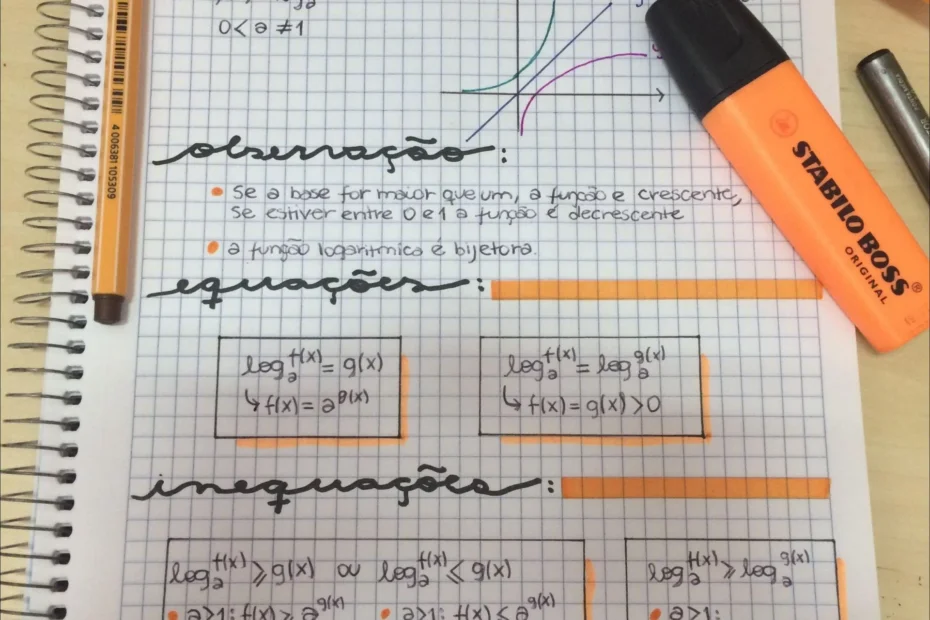 0 < a ≠ 1
observação:
• Se a base for maior que um, a função e crescente,
se estiver entre 0 e 1 a função é decrescente
• a função logarítmica é bijetora.
equações:
log_a^f(x) = g(x)
↳ f(x) = a^g(x)
log_a^f(x) = log_a^g(x)
↳ f(x) = g(x) > 0
inequações:
log_a^f(x) ⩾ g(x) ou log_a^f(x) < g(x)
• a>1: f(x) ⩾ a^g(x) • a>1: f(x) < a^g(x)
log_a^f(x) ⩾ log_a^g(x)
• a>1:
4 006381 105309
STABILO BOSS®
ORIGINAL